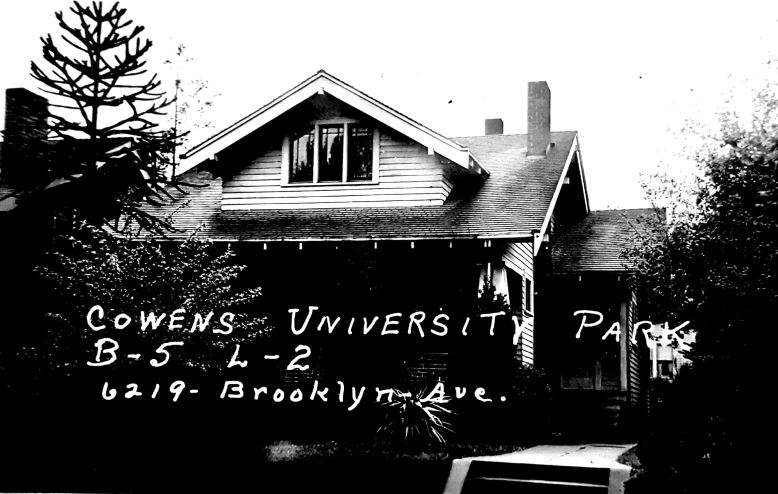 COWENS UNIVERSITY PARK
B-5 L-2
6219- Brooklyn- Ave.